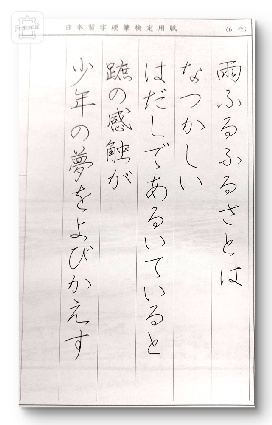 日本習字硬筆検定用紙
雨ふるふるさとは
なつかしい
はだしであるいていると
蹠の感触が
少年の夢をよびかえす